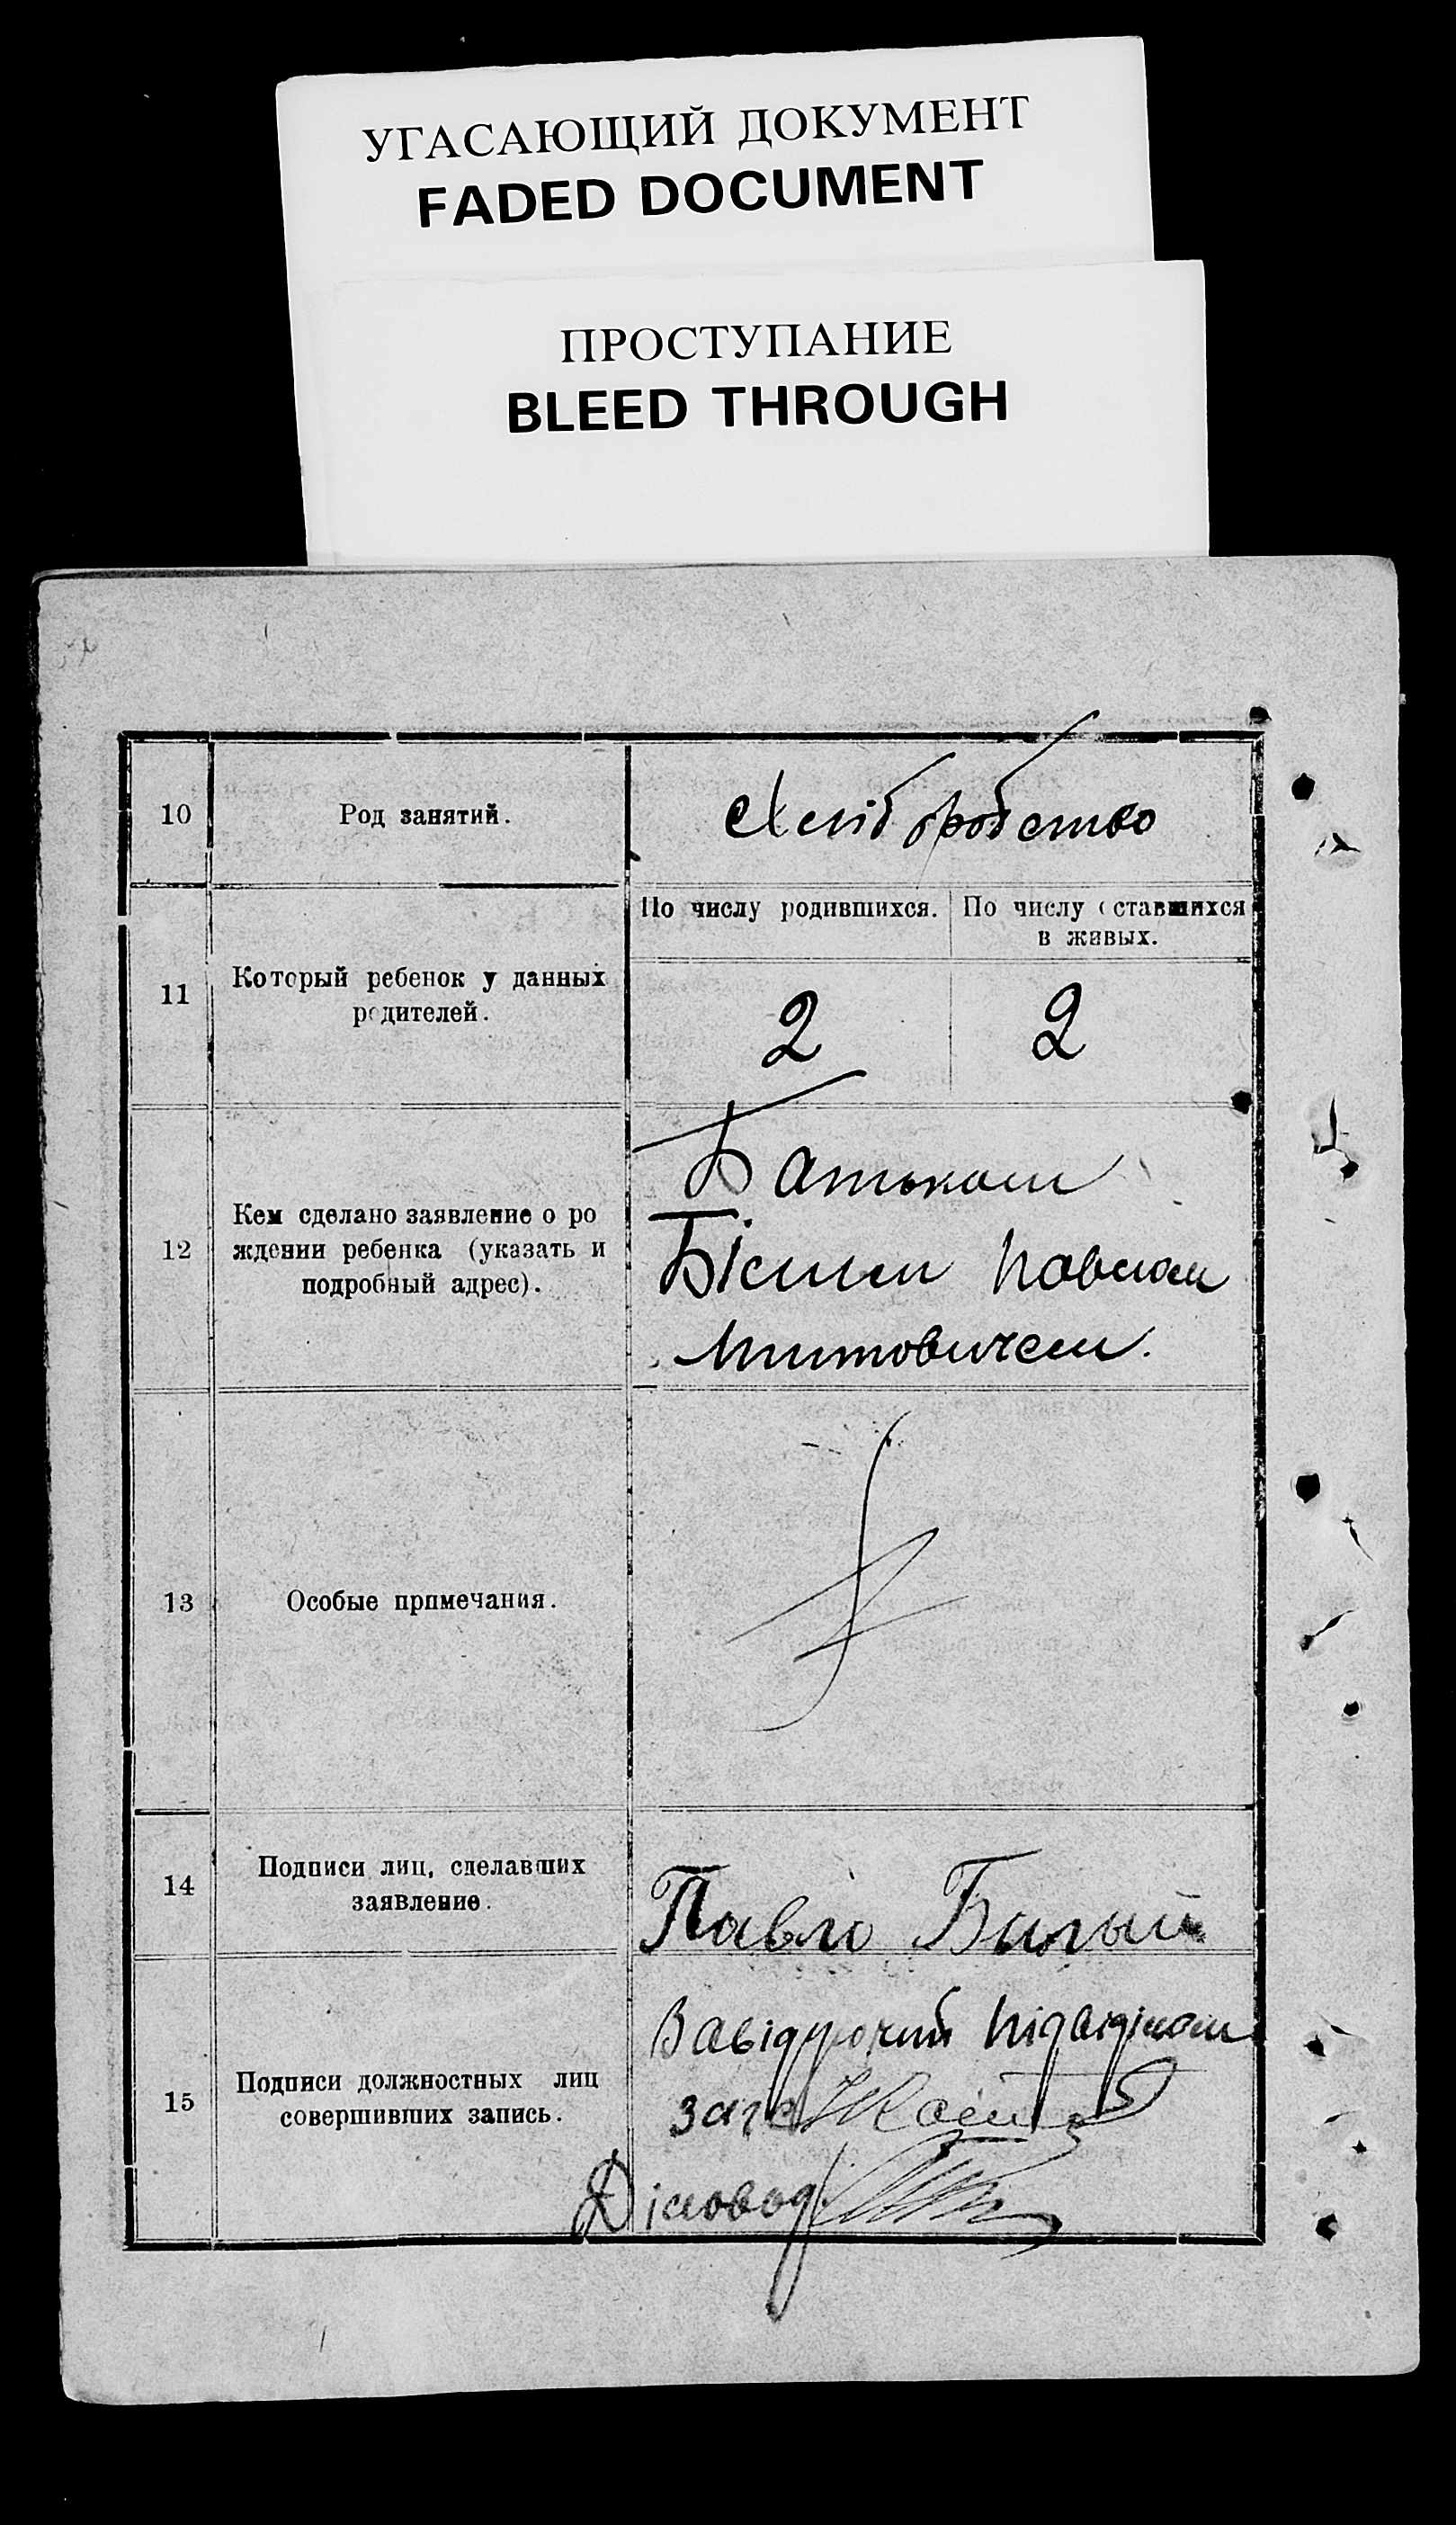 УГАСАЮЩИЙ ДОКУМЕНТ
FADED DOCUMENT
ПРОСТУПАНИЕ
BLEED THROUGH
10
Род занятий.
Хліборобство
11
Который ребенок у данных
родителей.
По числу родившихся.
По числу оставшихся
в живых.
2
2
12
Кем сделано заявление о ро
ждении ребенка (указать и
подробный адрес).
Батьком
Білим Павлом
Титовичем.
13
Особые примечания.
14
Подписи лиц, сделавших
заявление.
Павло Билый
15
Подписи должностных лиц
совершивших запись.
Завідуючий підвідділом
загс
Діловод